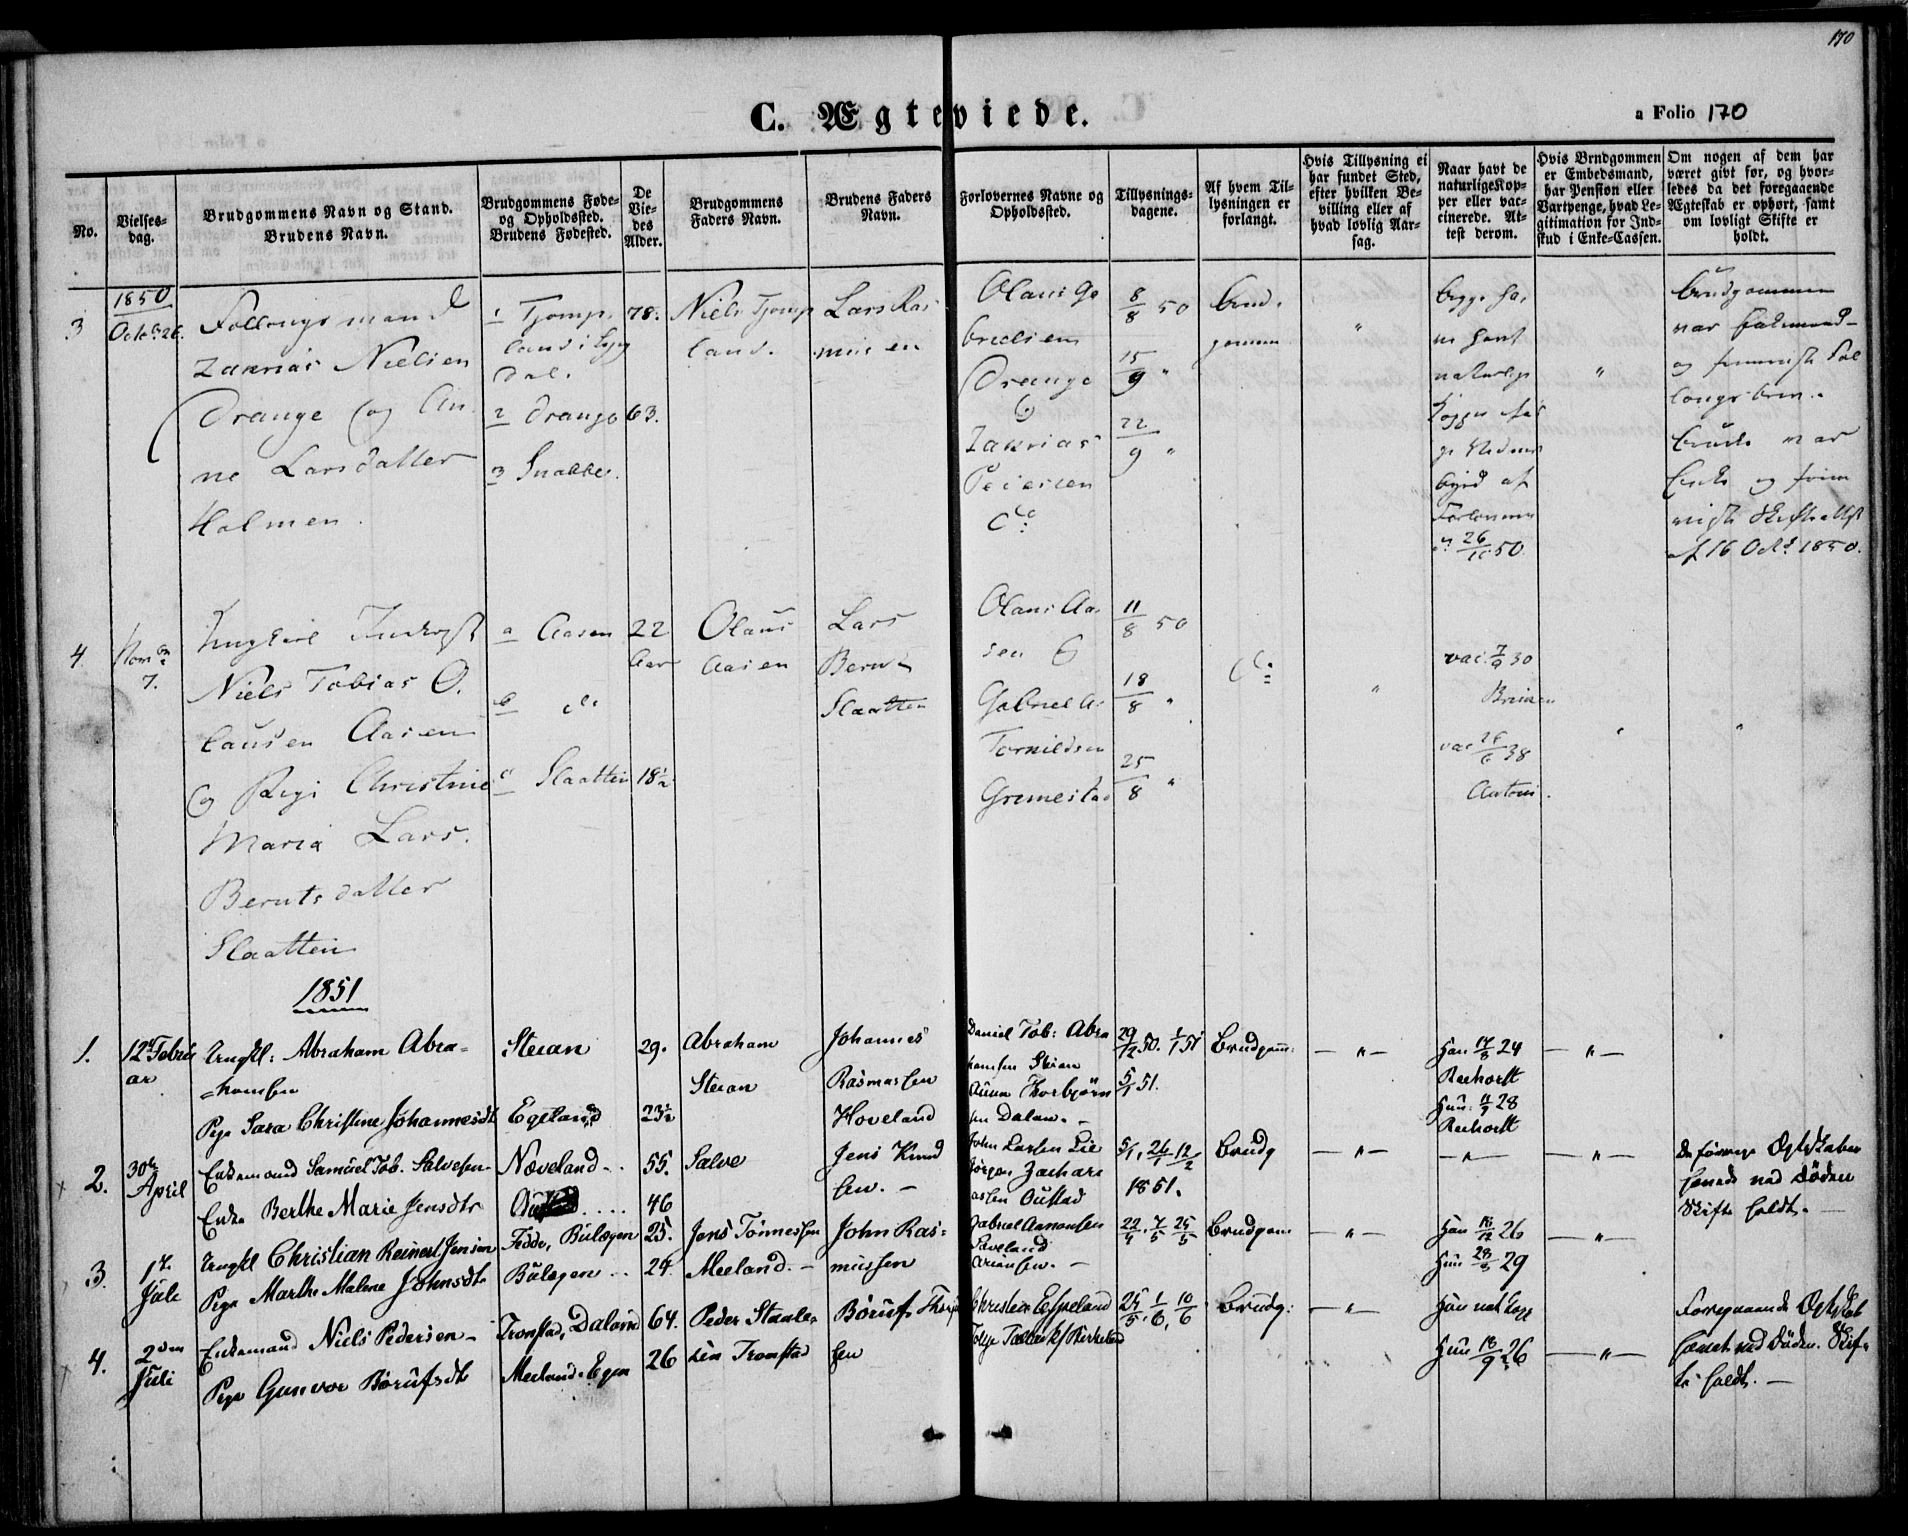 170
C. Ægteviede.
a Folio 170
No.
Vielses-
dag.
Brudgommens Navn og Stand.
Brudens Navn.
Brudgommens Føde-
og Opholdssted.
Brudens Fødested.
De
Vie-
des
Alder.
Brudgommens
Faders Navn.
Brudens Faders
Navn.
Forlovernes Navne og
Opholdssted.
Tillysnings-
dagene.
Af hvem Til-
lysningen er
forlangt.
Hvis Tillysning ei
har fundet Sted,
efter hvilken Be-
villing eller af
hvad lovlig Aar-
sag.
Naar havt de
naturlige Kop-
per eller vac-
cinerede. At-
test derom.
Hvis Brudgommen
er Embedsmand,
har Pension eller
Vartpenge, hvad Le-
gitimation for Ind-
skud i Enke-Cassen.
Om nogen af dem har
været givt før, og hvor-
ledes da det foregaaende
Ægteskab er ophørt, samt
om lovligt Skifte er
holdt.
1850
3
Octob 26.
Follougsmand
Zakrias Nielsen
Drange og An-
ne Larsdatter
Holmen.
1 Tjomp-
land i
dal.
2 Drange
3 Snabbe.
78.
63.
Niels Tjomp
land.
Lars Ras
musen
Olaus Ga
brielsen
Drange
Zakrias
Petersen
8/8 50
15/9 "
22/9 "
Brud-
gommen
"
26/10 50.
"
Brudgommen
var Enkemand
Bruden var
Enke og
af 16 Octr 1850.
4.
7.
Ungkarl
Niels Tobias O.
lausen Aasen
og Pige Christine
Maria Lars.
Berntsdatter
Slaatten
a Aasen
b do
c Slaatten
22
Aar
18½
Olaus
Aasen
Lars
Bernt
Slaatten
Olaus Aa
sen &
Gabriel A.
Tornildsen
Gremestad
11/8 50
18/8 "
25/8 "
do
"
vac. 7/9 30
vac 26/6 38
"
"
1851
1.
12te Febru
ar
Ungkl: Abraham Abra-
hamsen
Pige Sara Christine Johannesdt
Steian
Egeland
29.
23½
Abraham
Steian
Johannes
Rasmussen
Hoveland
Daniel Tob: Abra
hamsen Steian
Thorbjørn
sen Dalan. -
29/12 50. 1/1 51
5/1 51.
Brudgom:
— " —
Han 14/8 24
Reehorst
Hun: 11/9 28
Reehorst
— " —
2.
30te
April
Enkemand Samuel Tob. Salvesen
Enke Berthe Marie Jensdtr
Næveland
55.
46
Salve
Jens Knud
sen. -
John Larsen Lie
Jørgen Zachari
assen Oustad
5/1. 26/1 12/2
1851.
Brudg
— " —
— " —
— " —
De forrige Ægteskaber
hævede ved Døden
Skifte holdt. —
3.
1te
Juli
Ungkl Christian Reinert Jensen
Pige Marthe Malene Johnsdt
Fedde, Bulægen
Bulægen
25.
24.
Jens Tønnessen
Meeland. -
John Ras-
mussen
Gabriel Aanensen
22/4. 4/5 25/5
Brudgom
— " —
Han 18/12 26
Hun 28/8 29
— " —
4.
2den
Juli
Enkemand Niels Pedersen
Pige Gunvor Børufsdt
Tronstad, Daland
Meeland. Egen
64.
26
Peder Staale
sen Tronstad
Børuf
sen
Christen Espeland
25/5. 1/6, 10/6
Brudg:
— " —
Han nat. Kopp
Hun 18/9 26
— " —
Foregaaende Ægteskab
hævet ved Døden. Skif-
te holdt. —